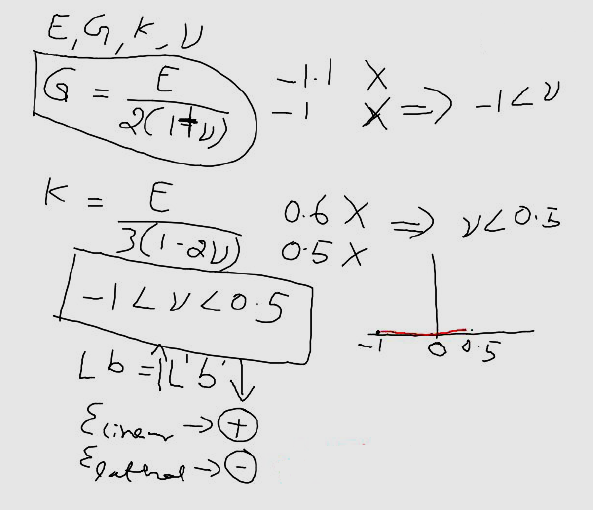 E, G, K, ν
G = E / 2(1+ν)
-1.1 X
-1 X ⇒ -1 < ν
K = E / 3(1-2ν)
0.6 X ⇒ ν < 0.5
0.5 X
-1 < ν < 0.5
-1 0 0.5
L b = ↑L' b' ↓
ε linear → +
ε lateral → -